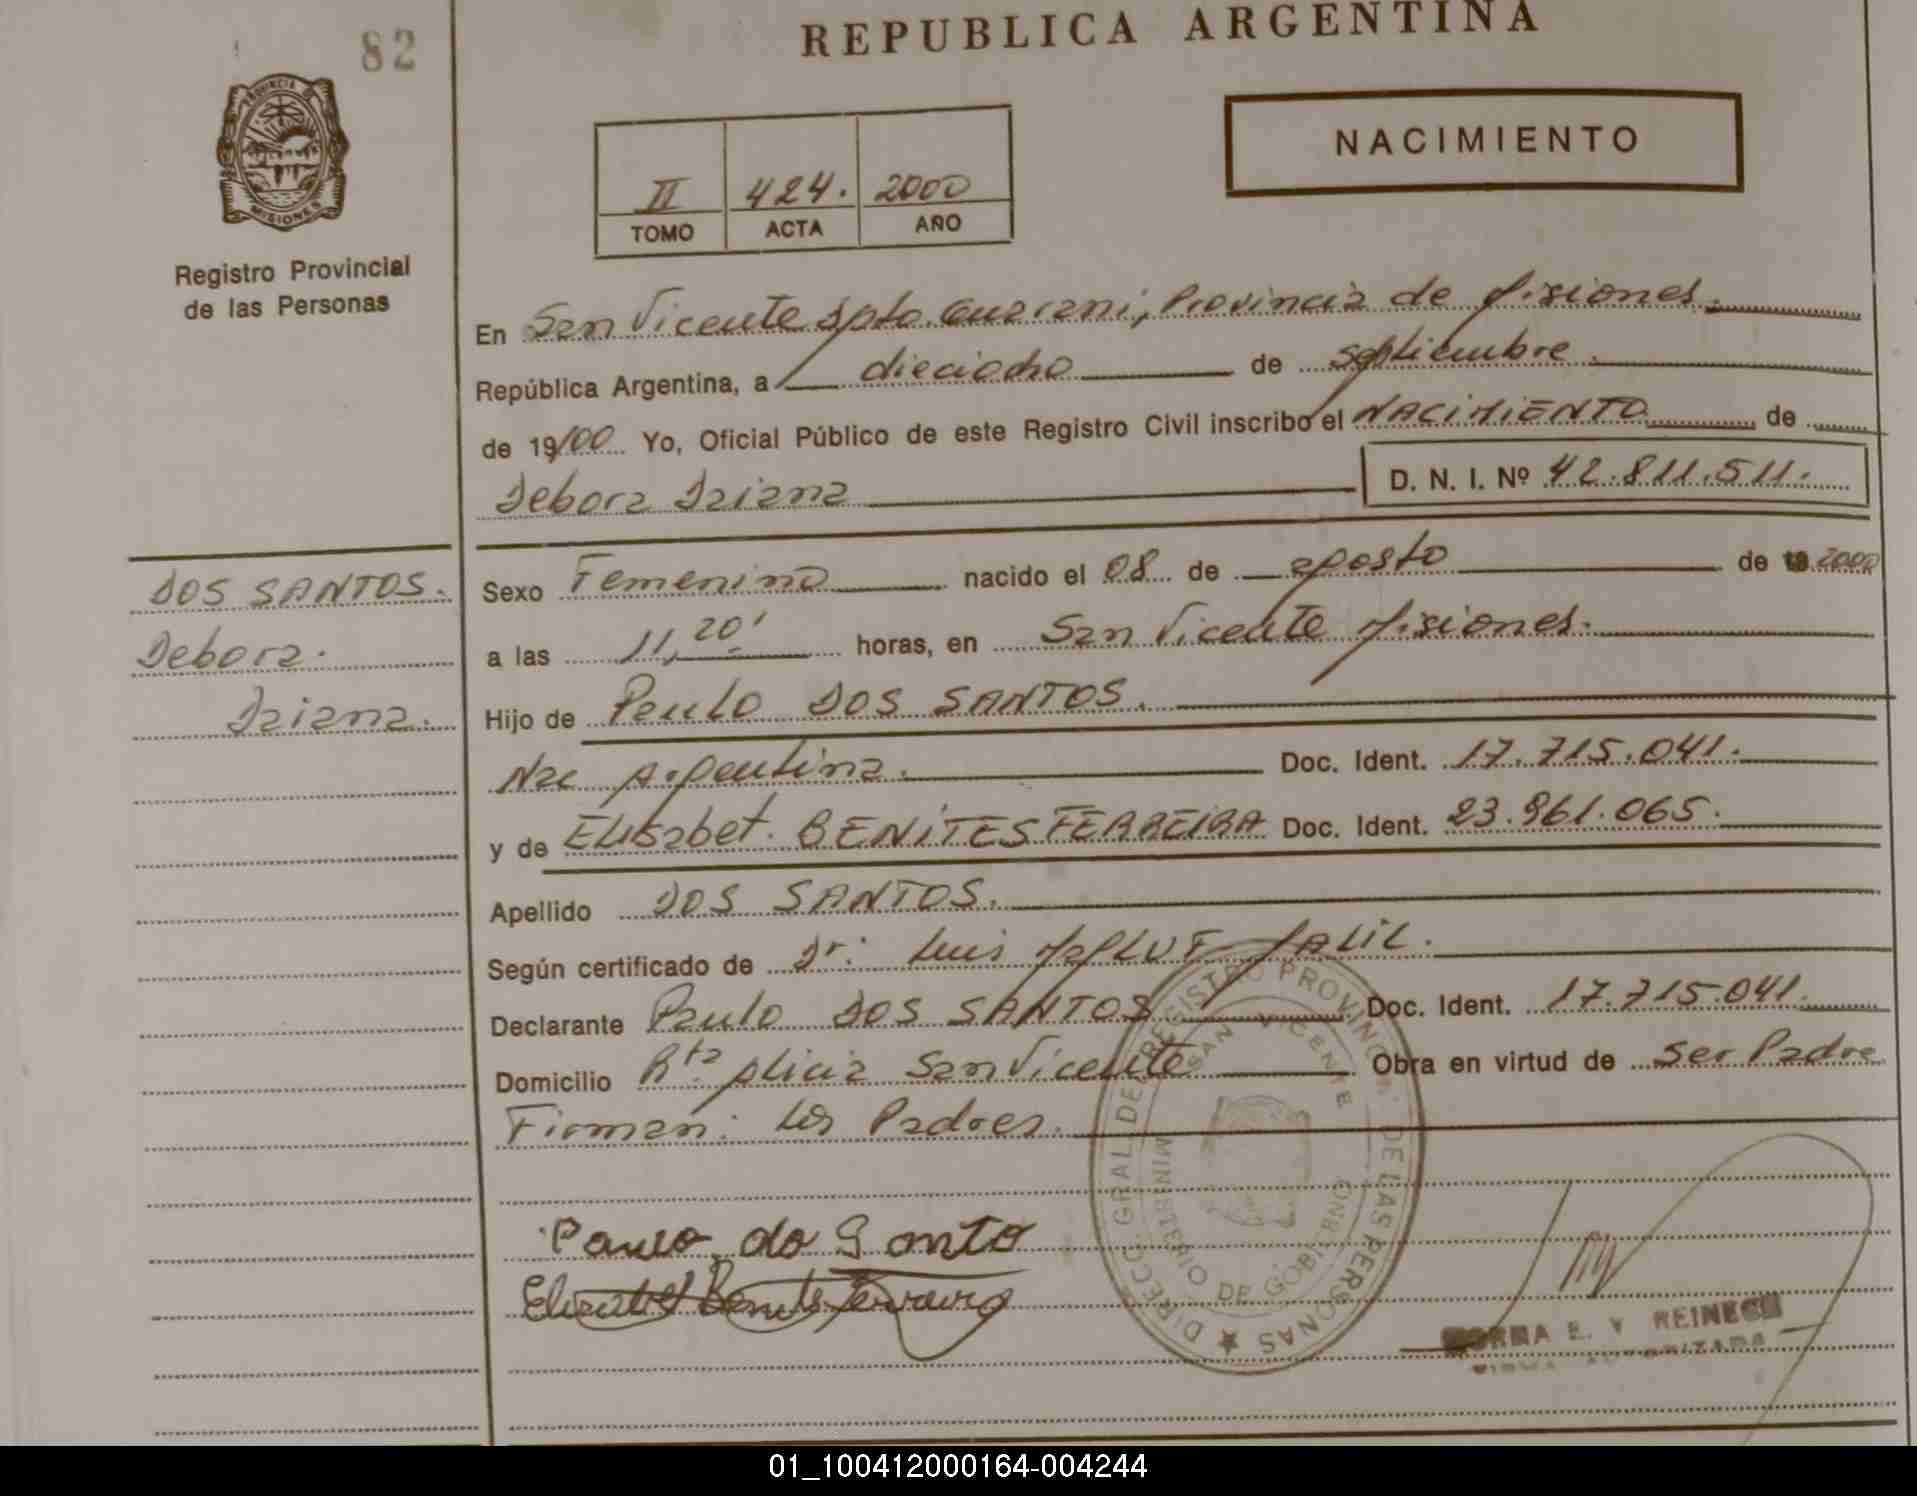 82
REPUBLICA ARGENTINA
PROVINCIA DE
MISIONES
NACIMIENTO
II 424. 2000
TOMO ACTA AÑO
Registro Provincial
de las Personas
En San Vicente Dpto. Guarani, Provincia de Misiones.
República Argentina, a dieciocho de septiembre.
de 19/00 Yo, Oficial Público de este Registro Civil inscribo el NACIMIENTO de
Debora Daiana D. N. I. Nº 42.811.511.
DOS SANTOS.
Debora.
Daiana.
Sexo Femenino nacido el 08 de agosto de 2000
a las 11,20' horas, en San Vicente Misiones.
Hijo de Paulo DOS SANTOS.
Nac Argentina. Doc. Ident. 17.715.041.
y de Elisabet. BENITES FERREIRA Doc. Ident. 23.961.065.
Apellido DOS SANTOS.
Según certificado de Dr: Luis JALIL.
Declarante Paulo DOS SANTOS Doc. Ident. 17.715.041.
Domicilio San Vicente Obra en virtud de ser Padre
Firman: los Padres.
DIRECC. GRAL. DEL REGISTRO PROVINCIAL DE LAS PERSONAS
SAN VICENTE
MINISTERIO DE GOBIERNO
Paulo do Santo
Elisabet Benites Ferreira
NORMA E. V REINECK
FIRMA AUTORIZADA
01_100412000164-004244